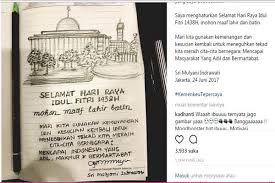 SELAMAT HARI RAYA
IDUL FITRI 1438H
mohon maaf lahir batin
MARI KITA GUNAKAN KEMENANGAN
DAN KESUCIAN KEMBALI UNTUK
MENEGUHKAN TEKAD MERAIH
CITA-CITA BERNEGARA;
MENCAPAI INDONESIA YANG
ADIL, MAKMUR & BERMARTABAT
Sri Mulyani Indrawati
Saya menghaturkan Selamat Hari Raya Idul
Fitri 1438H, mohon maaf lahir dan batin.
Mari kita gunakan kemenangan dan
kesucian kembali untuk meneguhkan tekad
meraih cita-cita bernegara: Mencapai
Masyarakat Yang Adil dan Bermartabat.
Sri Mulyani Indrawati
Jakarta, 24 Juni 2017
#KemenkeuTepercaya
muat komentar lainnya
kadhanti Waaah ibuuuu ternyata jago
gambar yaaa
Banggaaaaaa
3,953 suka
Masuk untuk menyukai atau